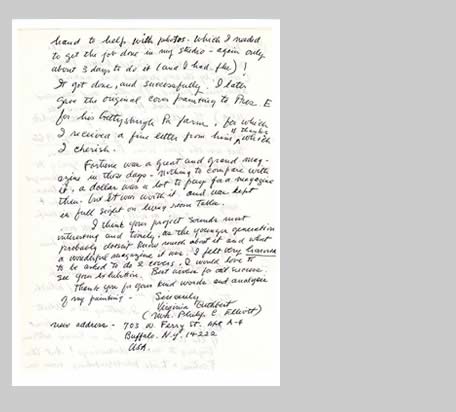 hand to help with photos - which I needed
to get the job done in my studio - again only
about 3 days to do it (and I had flu)!
It got done, and successfully. I later
gave the original cover painting to Pres. E
for his Gettysburgh Pa farm, for which
I received a fine letter from him, of thanks which
I cherish.
Fortune was a great and grand mag-
azine in those days - nothing to compare with
it, a dollar was a lot to pay for a magazine
then - but it was worth it and was kept
in full sight on living room table.
I think your project sounds most
interesting and timely, as the younger generation
probably doesn't know much about it and what
a wonderful magazine it was. I felt very honored
to be asked to do 2 covers. I would love to
see your exhibition. Best wishes for all success.
Thank you for your kind words and analysis
of my painting -
Sincerely
Virginia Cuthbert
(Mrs. Philip C. Elliott)
new address - 703 W. Ferry St. Apt A-4
Buffalo, N.Y. 14222
USA.